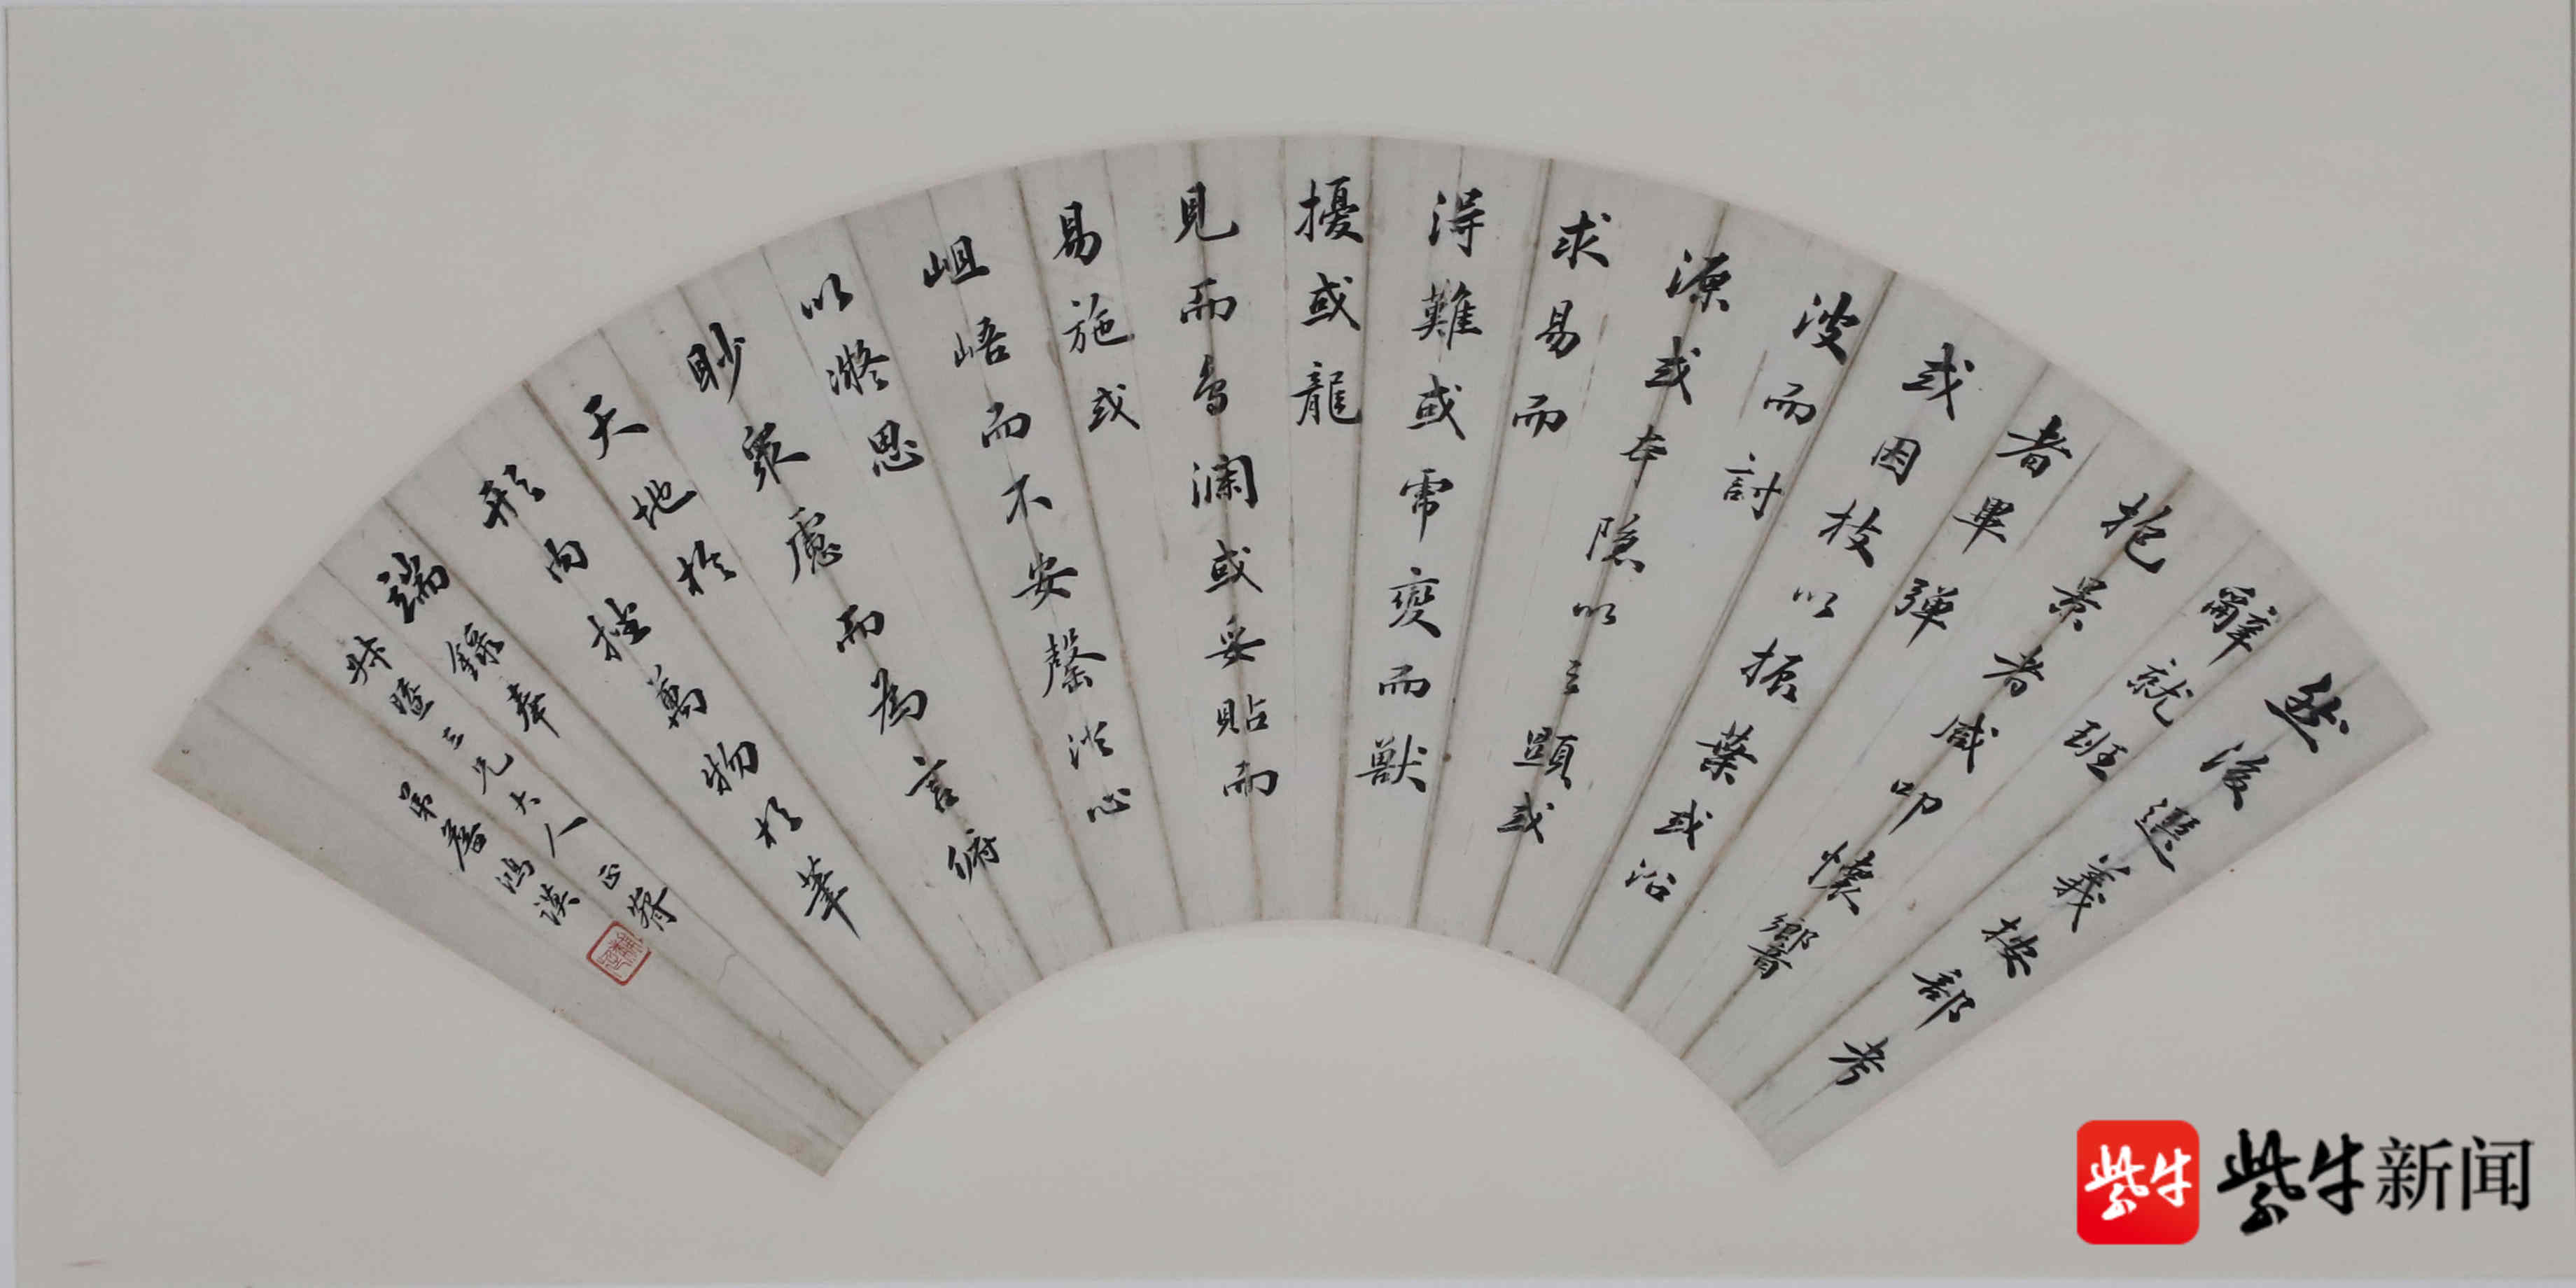 然後選義按部考
辭就班
抱景者咸叩懷響
者畢彈
或因枝以振葉或沿
波而討
源或本隱以之顯或
求易而
得難或虎變而獸
擾或龍
見而鳥瀾或妥貼而
易施或
岨峿而不安罄澄心
以凝思
眇衆慮而為言俯
天地於
形内挫萬物於筆
端 錄奉
三兄大人正
弟詹鴻謨
紫牛
紫牛新闻